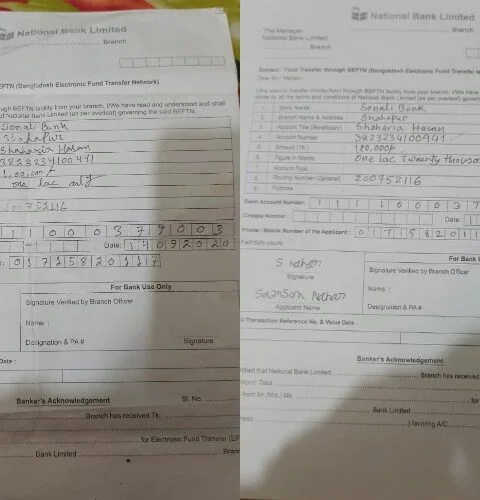 National Bank Limited
Branch
BEFTN (Bangladesh Electronic Fund Transfer Network)
ough BEFTN facility from your branch. I/We have read and understood and shall
of National Bank Limited (as per overleaf) governing the said BEFTN.
Sonali Bank
Shahapur
Shaharia Hasan
3823234100441
1,00,000/-
one lac only
200752116
1 1 1 0 0 0 3 7 9 0 0 3
Date: 1 4 0 9 2 0 2 0
0 1 7 1 5 8 2 0 1 1 7
For Bank Use Only
Signature Verified by Branch Officer
Name :
Designation & PA#
Signature
Date :
Banker's Acknowledgement
Sl. No.
Branch has received Tk.
for Electronic Fund Transfer (EF
Bank Limited
Bran
National Bank Limited
Branch
The Manager
National Bank Limited
Branch
Subject : Fund Transfer through BEFTN (Bangladesh Electronic Fund Transfer N
Dear Sir / Madam,
Bank Name Sonali Bank
Branch Name & Address Shahapur
Account Title (Beneficiary) Shaharia Hasan
Account Number 3823234100441
Amount (TK.) 120,000/-
Figure in Words One lac Twenty thousa
Account Type
Routing Number (Optional) 200752116
Purpose
Debit Account Number: 1 1 1 1 0 0 0 3 7
Cheque Number: Date: 1
Phone / Mobile Number of the Applicant : 0 1 7 1 5 8 2 0 1 1
Faithfully yours,
S Nahan
Signature
Samsun Nahar
Applicant Name
For Bank U
Signature Verified by Branch Officer
Name :
Designation & PA#
Transaction Reference No. & Value Date :
Banker's Acknowledgement
rtified that National Bank Limited Branch has received
Word: Taka
from Mr./Mrs./Ms.
Bank Limited
) favoring A/C